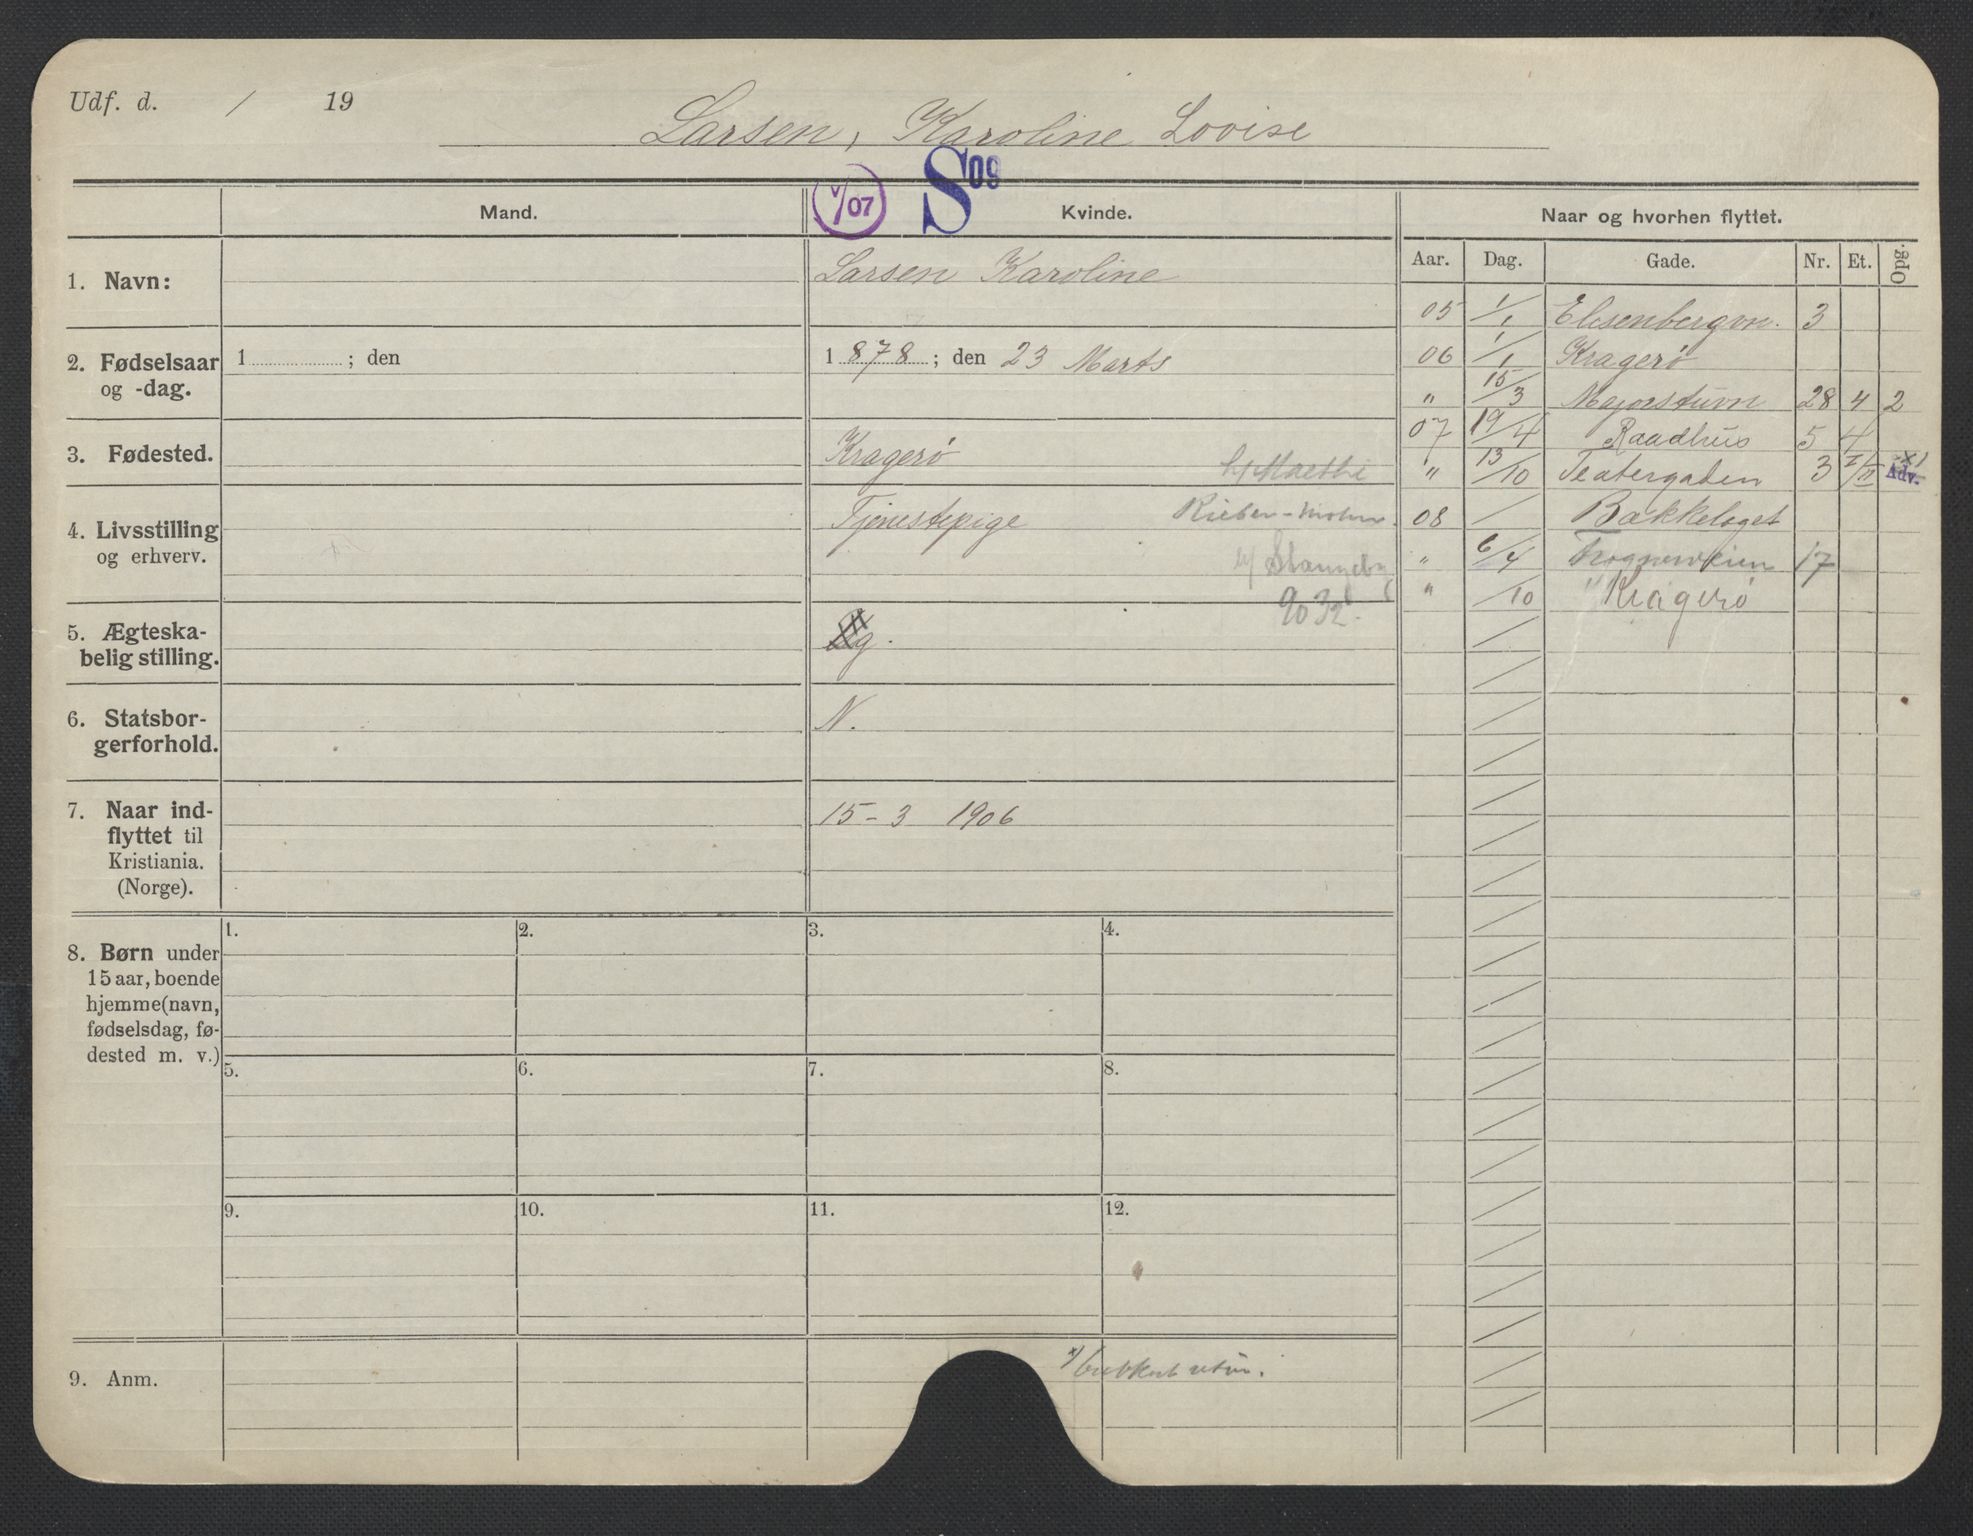 Udf. d. / 19
Larsen, Karoline Lovise
V/07 S09
Mand. Kvinde. Naar og hvorhen flyttet.
Aar. Dag. Gade. Nr. Et. Opg.
1. Navn: Larsen Karoline
2. Fødselsaar og -dag.
1 ; den
1 878 ; den 23 Marts
3. Fødested. Kragerø
4. Livsstilling og erhverv. Tjenestepige
9032.
5. Ægteskabelig stilling. Ug.
6. Statsborgerforhold. N.
7. Naar indflyttet til
Kristiania.
(Norge).
15-3 1906
05 1/1 Elisenbergvn. 3
06 1/1 Kragerø
" 15/3 Majorstuvn 28 4 2
07 19/4 Raadhus 5 4
" 13/10 Teatergaden 3 I/II x) Adv.
08 / Bækkelaget
" 6/4 Frognerveien 17
" /10 Kragerø
8. Børn under
15 aar, boende
hjemme (navn,
fødselsdag, fø-
dested m. v.)
1. 2. 3. 4.
5. 6. 7. 8.
9. 10. 11. 12.
9. Anm.